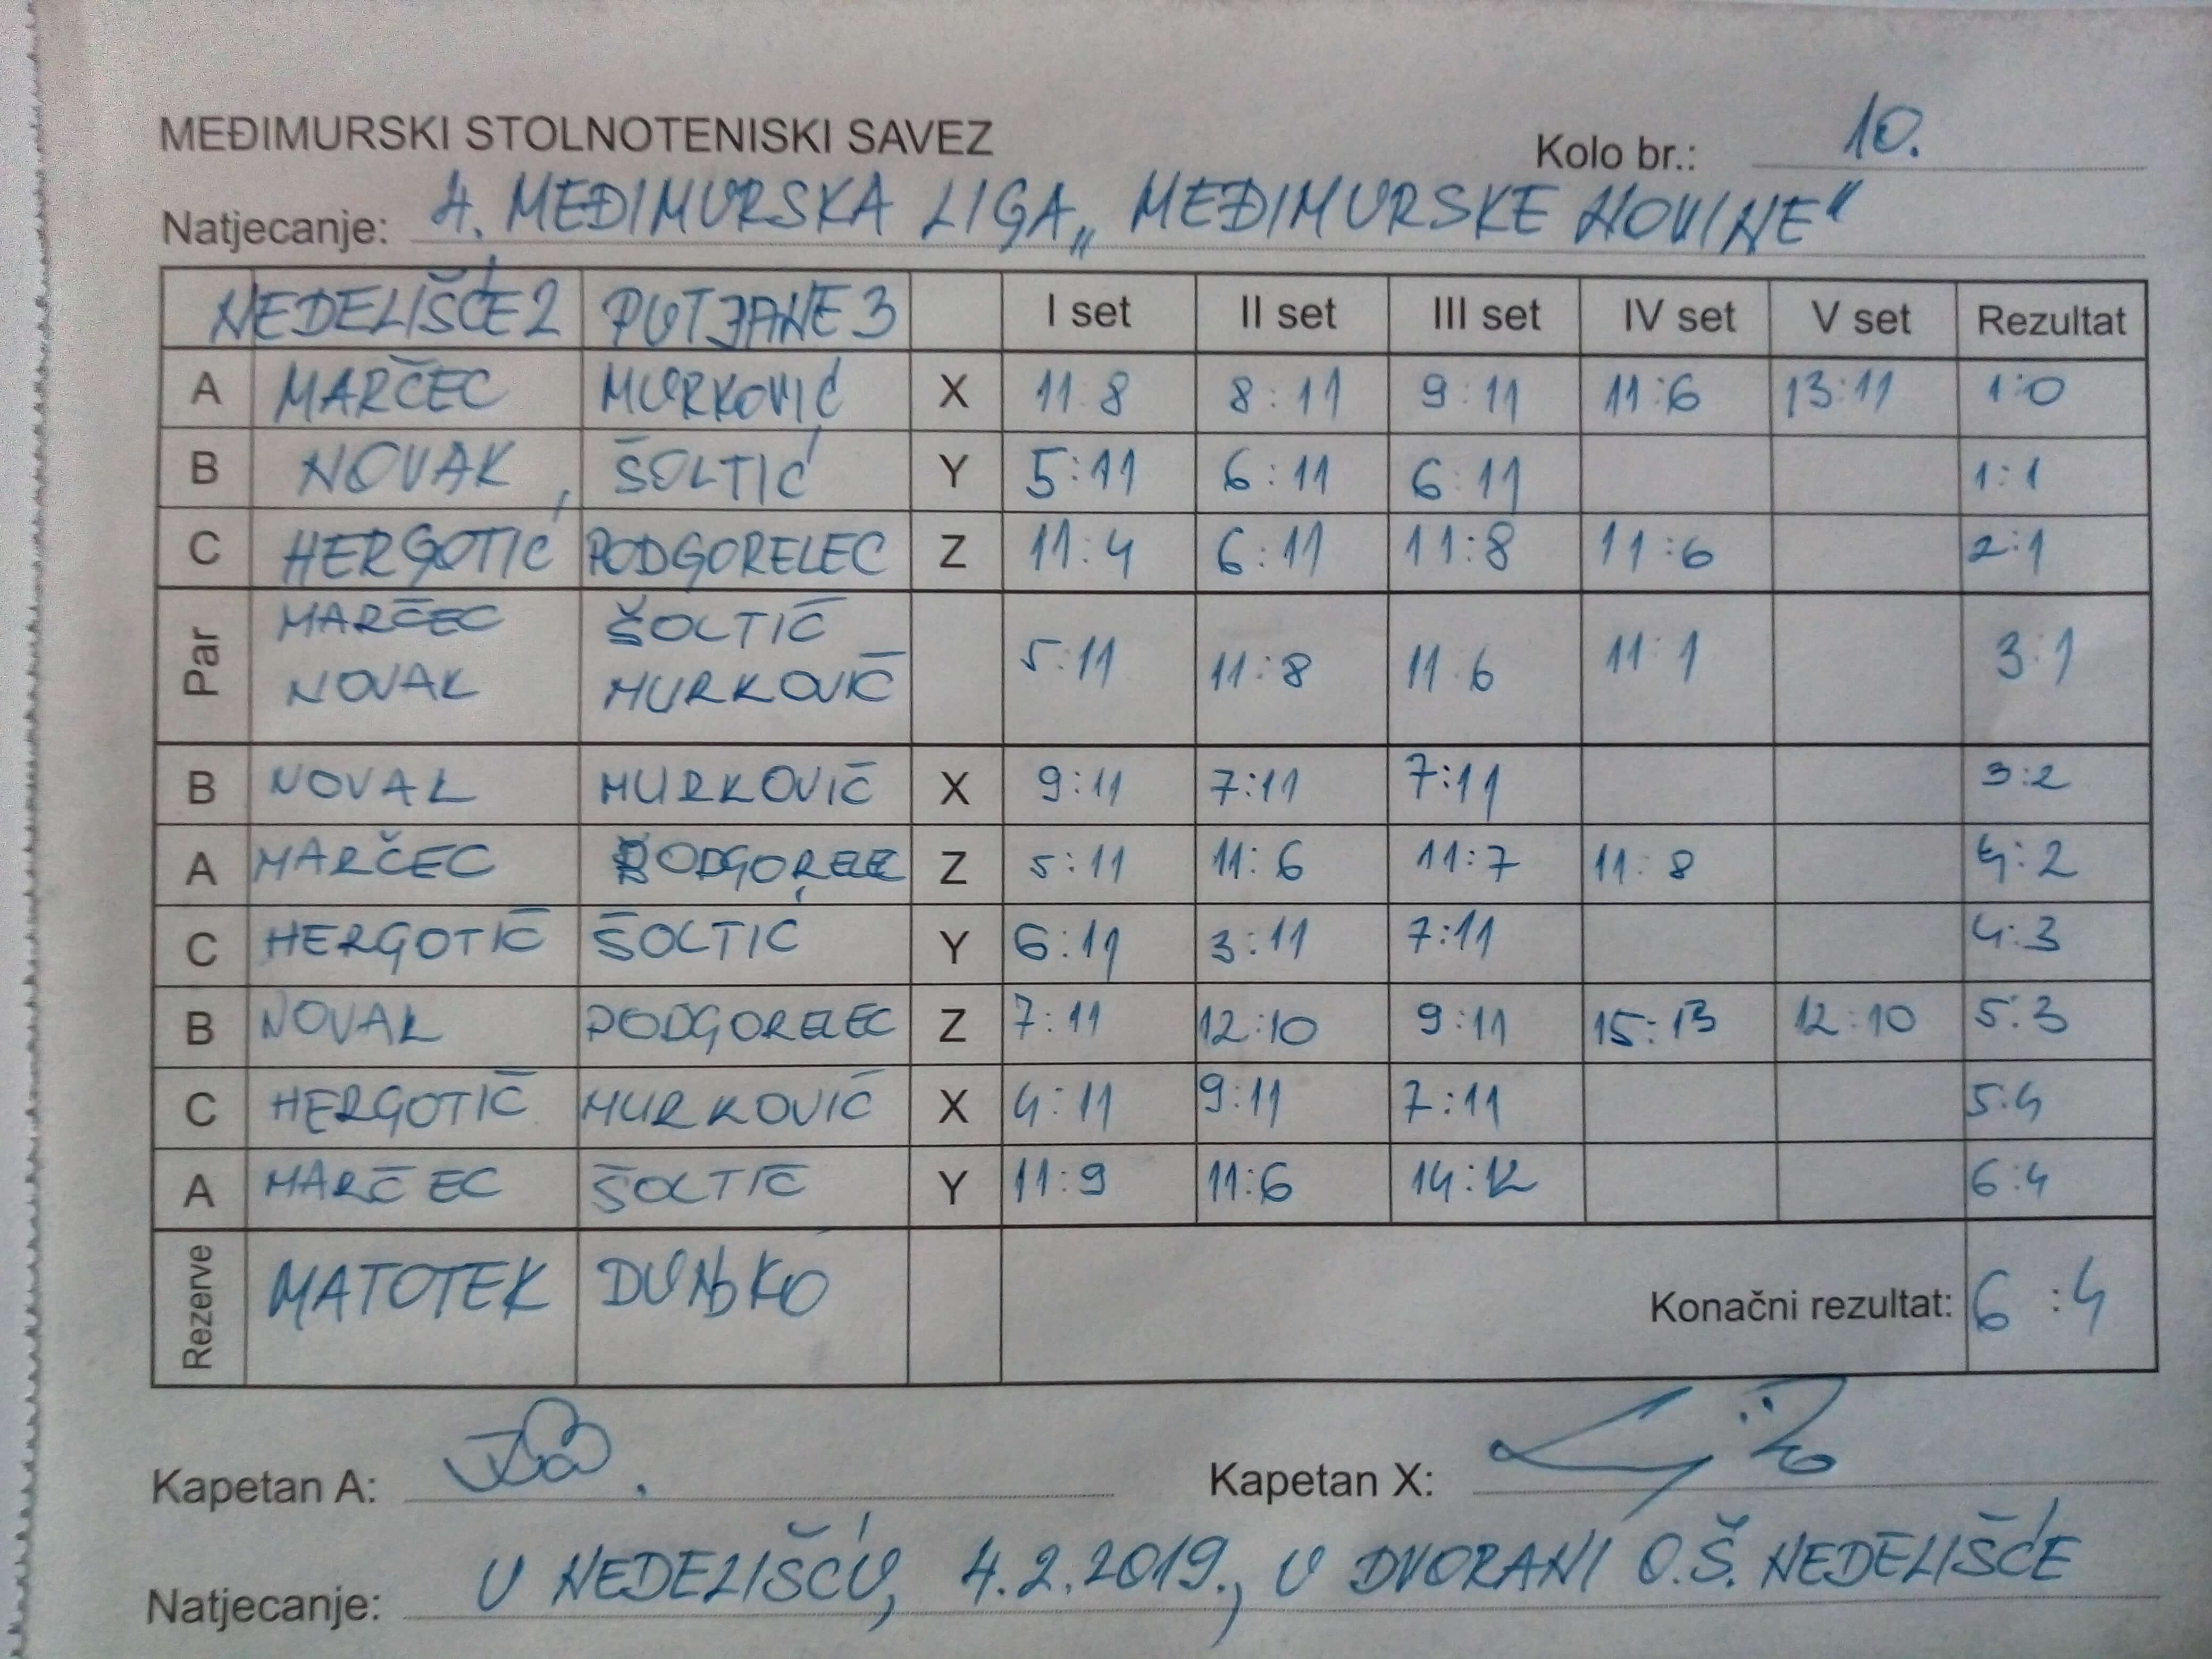 MEĐIMURSKI STOLNOTENISKI SAVEZ Kolo br.: 10.
Natjecanje: 4. MEĐIMURSKA LIGA „MEĐIMURSKE NOVINE“
NEDELIŠĆE 2 PUTJANE 3 I set II set III set IV set V set Rezultat
A MARČEC MURKOVIĆ X 11:8 8:11 9:11 11:6 13:11 1:0
B NOVAK ŠOLTIĆ Y 5:11 6:11 6:11 1:1
C HERGOTIĆ PODGORELEC Z 11:4 6:11 11:8 11:6 2:1
Par MARČEC ŠOLTIĆ 5:11 11:8 11:6 11:1 3:1
NOVAK MURKOVIĆ
B NOVAK MURKOVIĆ X 9:11 7:11 7:11 3:2
A MARČEC PODGORELEC Z 5:11 11:6 11:7 11:8 4:2
C HERGOTIĆ ŠOLTIĆ Y 6:11 3:11 7:11 4:3
B NOVAK PODGORELEC Z 7:11 12:10 9:11 15:13 12:10 5:3
C HERGOTIĆ MURKOVIĆ X 4:11 9:11 7:11 5:4
A MARČEC ŠOLTIĆ Y 11:9 11:6 14:12 6:4
Rezerve MATOTEK Konačni rezultat: 6:4
Kapetan A: Kapetan X:
Natjecanje: U NEDELIŠĆU, 4.2.2019., U DVORANI O.Š. NEDELIŠĆE